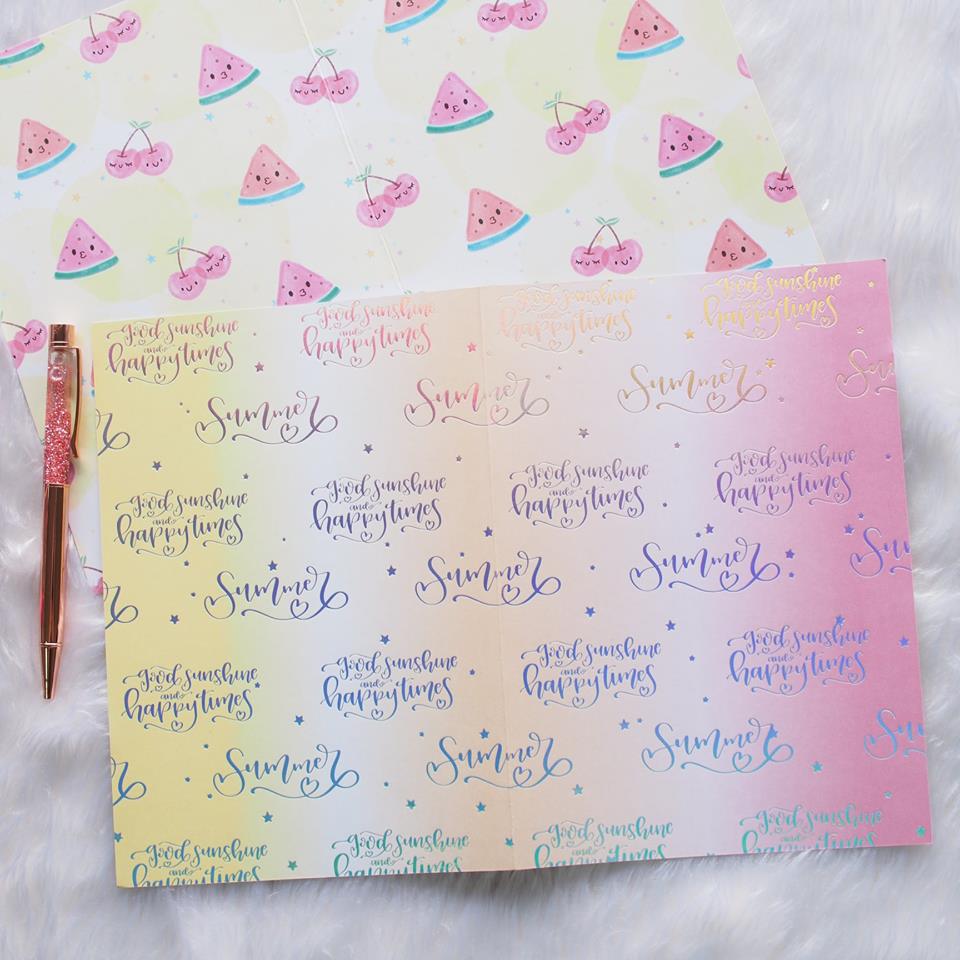 Good sunshine
and
happy times
Good sunshine
and
happy times
Good sunshine
and
happy times
Good sunshine
and
happy times
Summer
Summer
Summer
Su
Good sunshine
and
happy times
Good sunshine
and
happy times
Good sunshine
and
happy times
Good sunshine
and
happy times
Summer
Summer
Summer
Su
Good sunshine
and
happy times
Good sunshine
and
happy times
Good sunshine
and
happy times
Good sunshine
and
happy times
Summer
Summer
Summer
Su
Good sunshine
and
happy times
Good sunshine
and
happy times
Good sunshine
and
happy times
Good sunshine
and
happy times